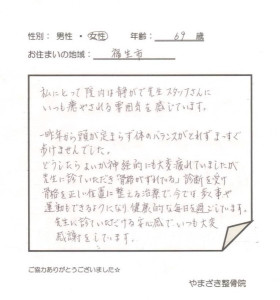 性別： 男性 ・ 女性 年齢： 69 歳
お住まいの地域： 福生市
私にとって院内は静かで先生スタッフさんに
いつも癒やされる雰囲気を感じています。
一昨年から頭が定まらず体のバランスがとれずまっすぐ
歩けませんでした。
どうしたらよいか神経的にも大変疲れていましたが
先生に診ていただき「骨格がずれている」診断を受け
骨格を正しい位置に整える治療で、今では家事や
運動もできるようになり健康的な毎日を過ごしています。
先生に診ていただける安心感でいつも大変
感謝をしています。
ご協力ありがとうございました☆
やまざき整骨院